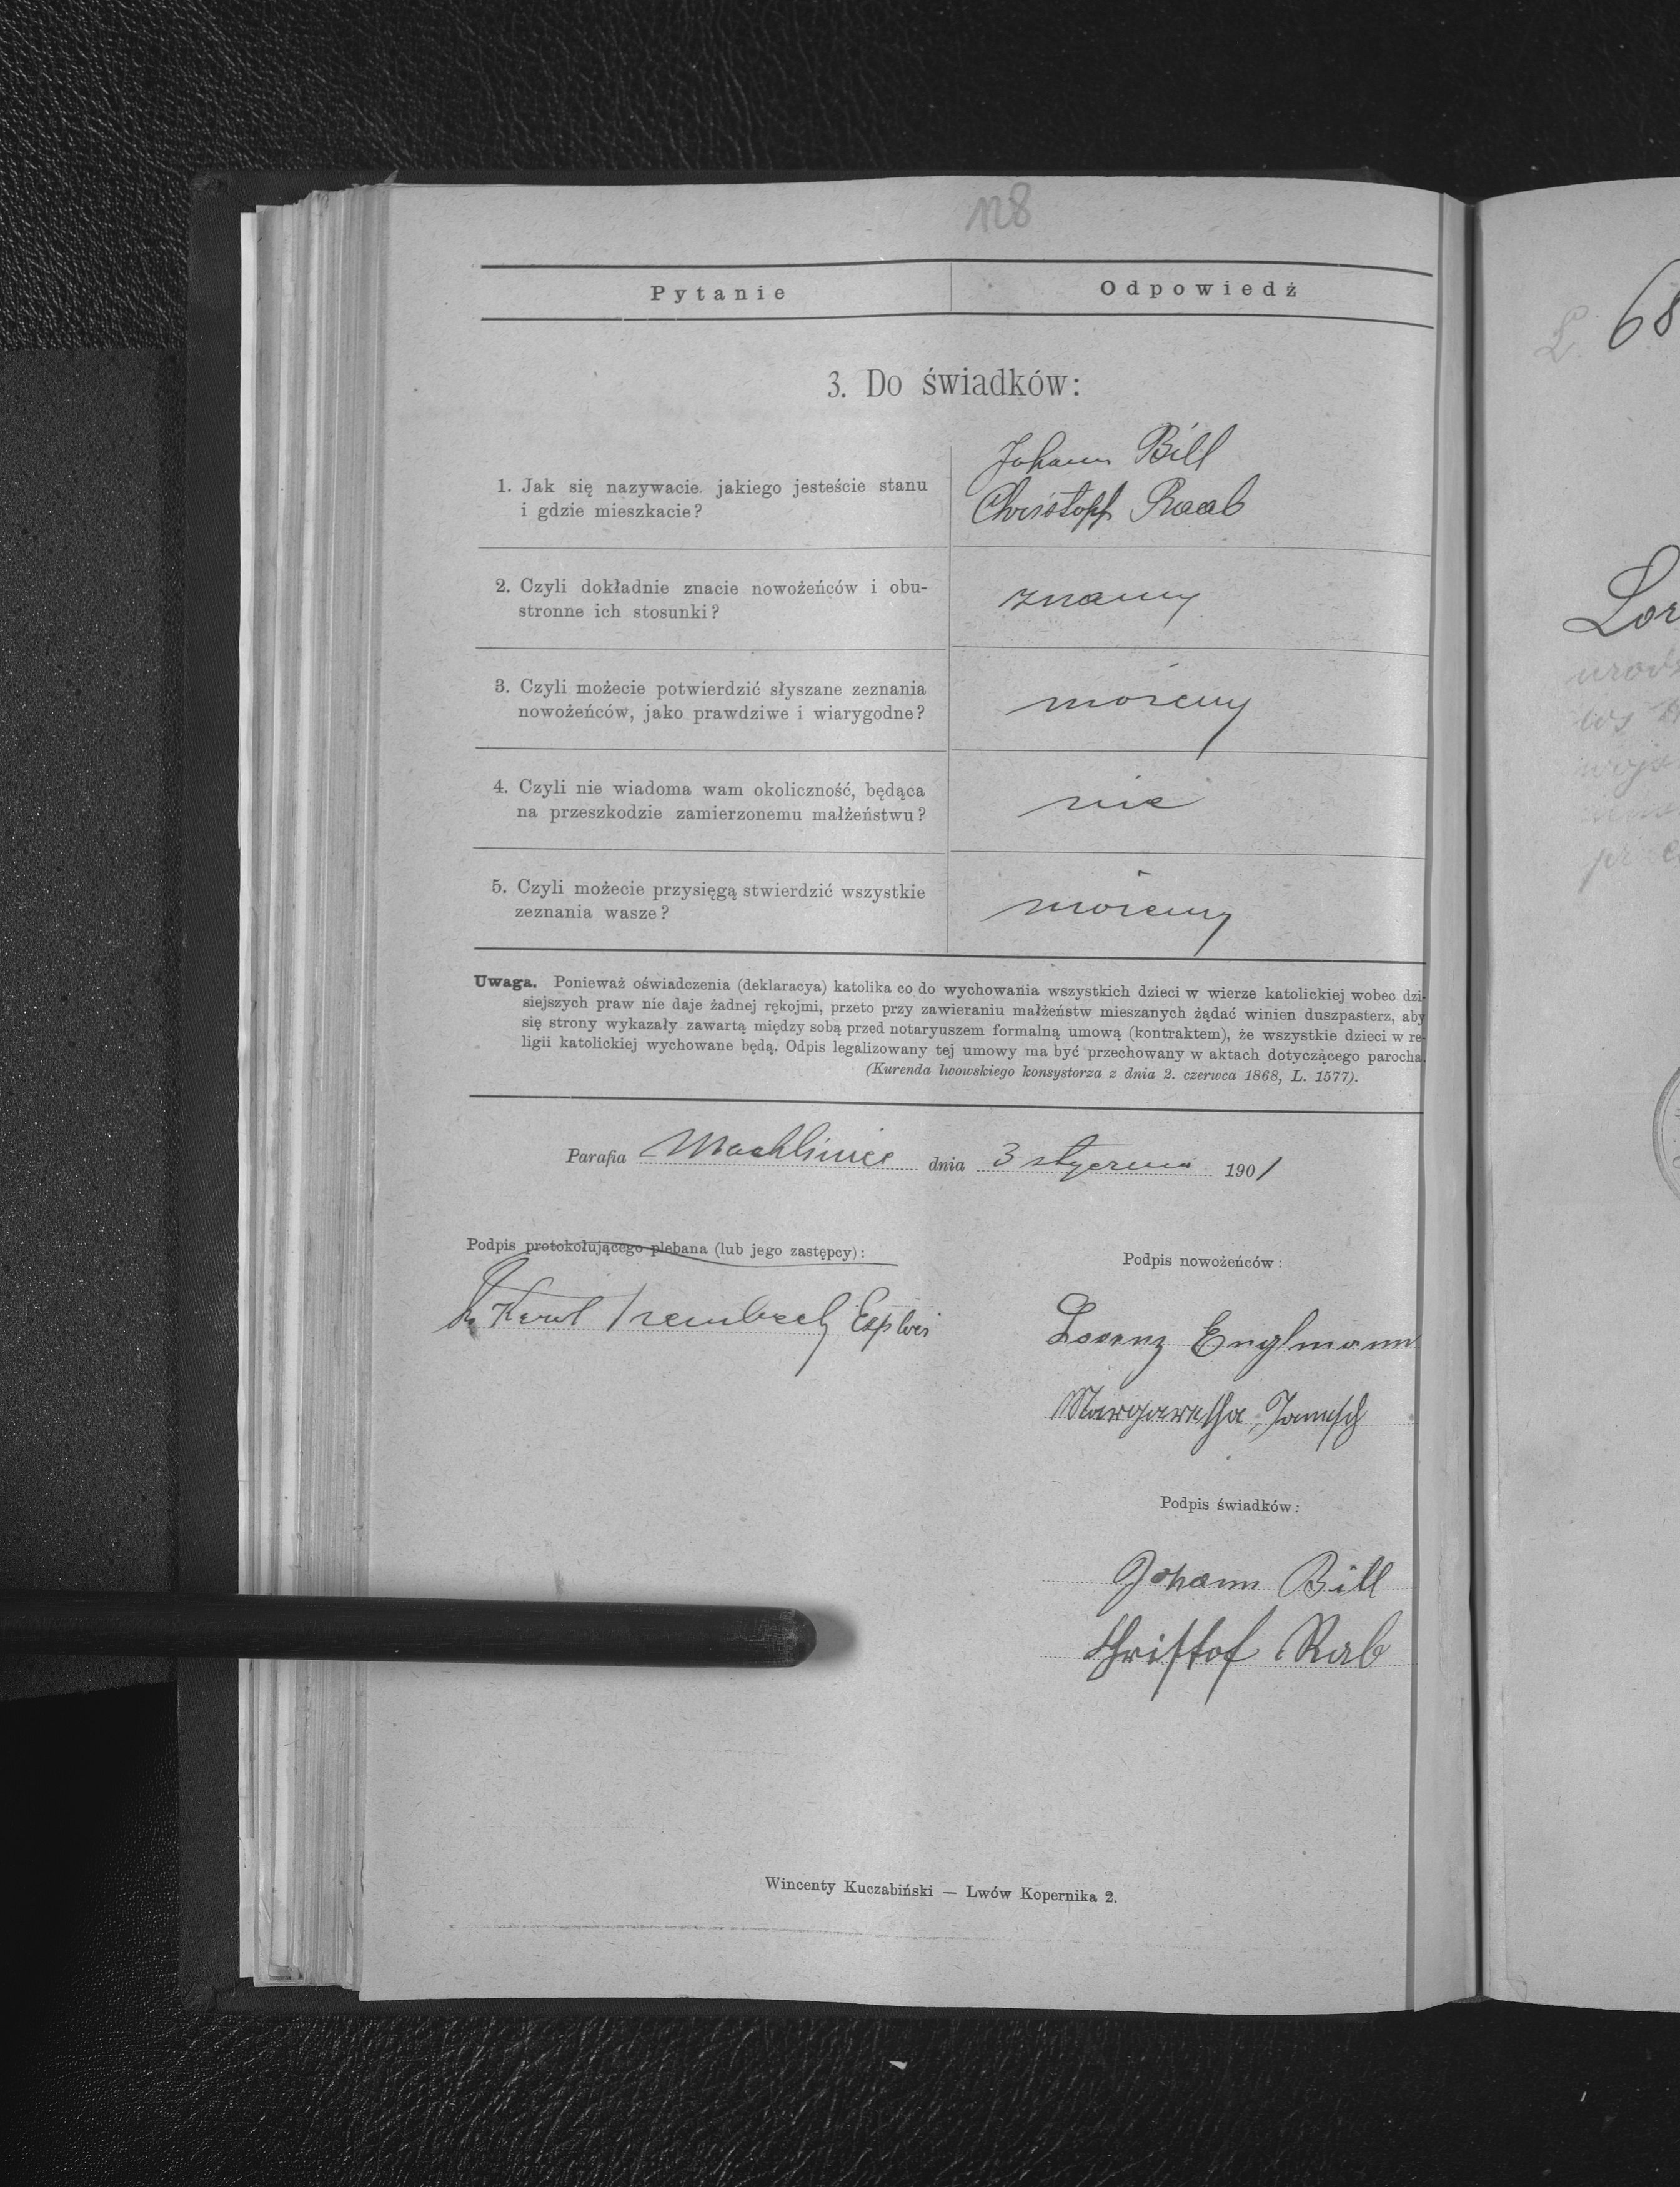 128
Pytanie
Odpowiedź
3. Do świadków:
1. Jak się nazywacie jakiego jesteście stanu
i gdzie mieszkacie?
Johann Bill
Christoph Raab
2. Czyli dokładnie znacie nowożeńców i obu-
stronne ich stosunki?
znamy
3. Czyli możecie potwierdzić słyszane zeznania
nowożeńców, jako prawdziwe i wiarygodne?
możemy
4. Czyli nie wiadoma wam okoliczność, będąca
na przeszkodzie zamierzonemu małżeństwu?
nie
5. Czyli możecie przysięgą stwierdzić wszystkie
zeznania wasze?
możemy
Uwaga. Ponieważ oświadczenia (deklaracya) katolika co do wychowania wszystkich dzieci w wierze katolickiej wobec dzi-
siejszych praw nie daje żadnej rękojmi, przeto przy zawieraniu małżeństw mieszanych żądać winien duszpasterz, aby
się strony wykazały zawartą między sobą przed notaryuszem formalną umową (kontraktem), że wszystkie dzieci w re-
ligii katolickiej wychowane będą. Odpis legalizowany tej umowy ma być przechowany w aktach dotyczącego parocha.
(Kurenda lwowskiego konsystorza z dnia 2. czerwca 1868, L. 1577).
Parafia Machliniec dnia 3 stycznia 1901
Podpis protokołującego plebana (lub jego zastępcy):
Podpis nowożeńców:
Karol
Lorenz Englmann
Margaretha Janisch
Podpis świadków:
Johann Bill
Christof Rab
Wincenty Kuczabiński — Lwów Kopernika 2.
L. 68
Lor